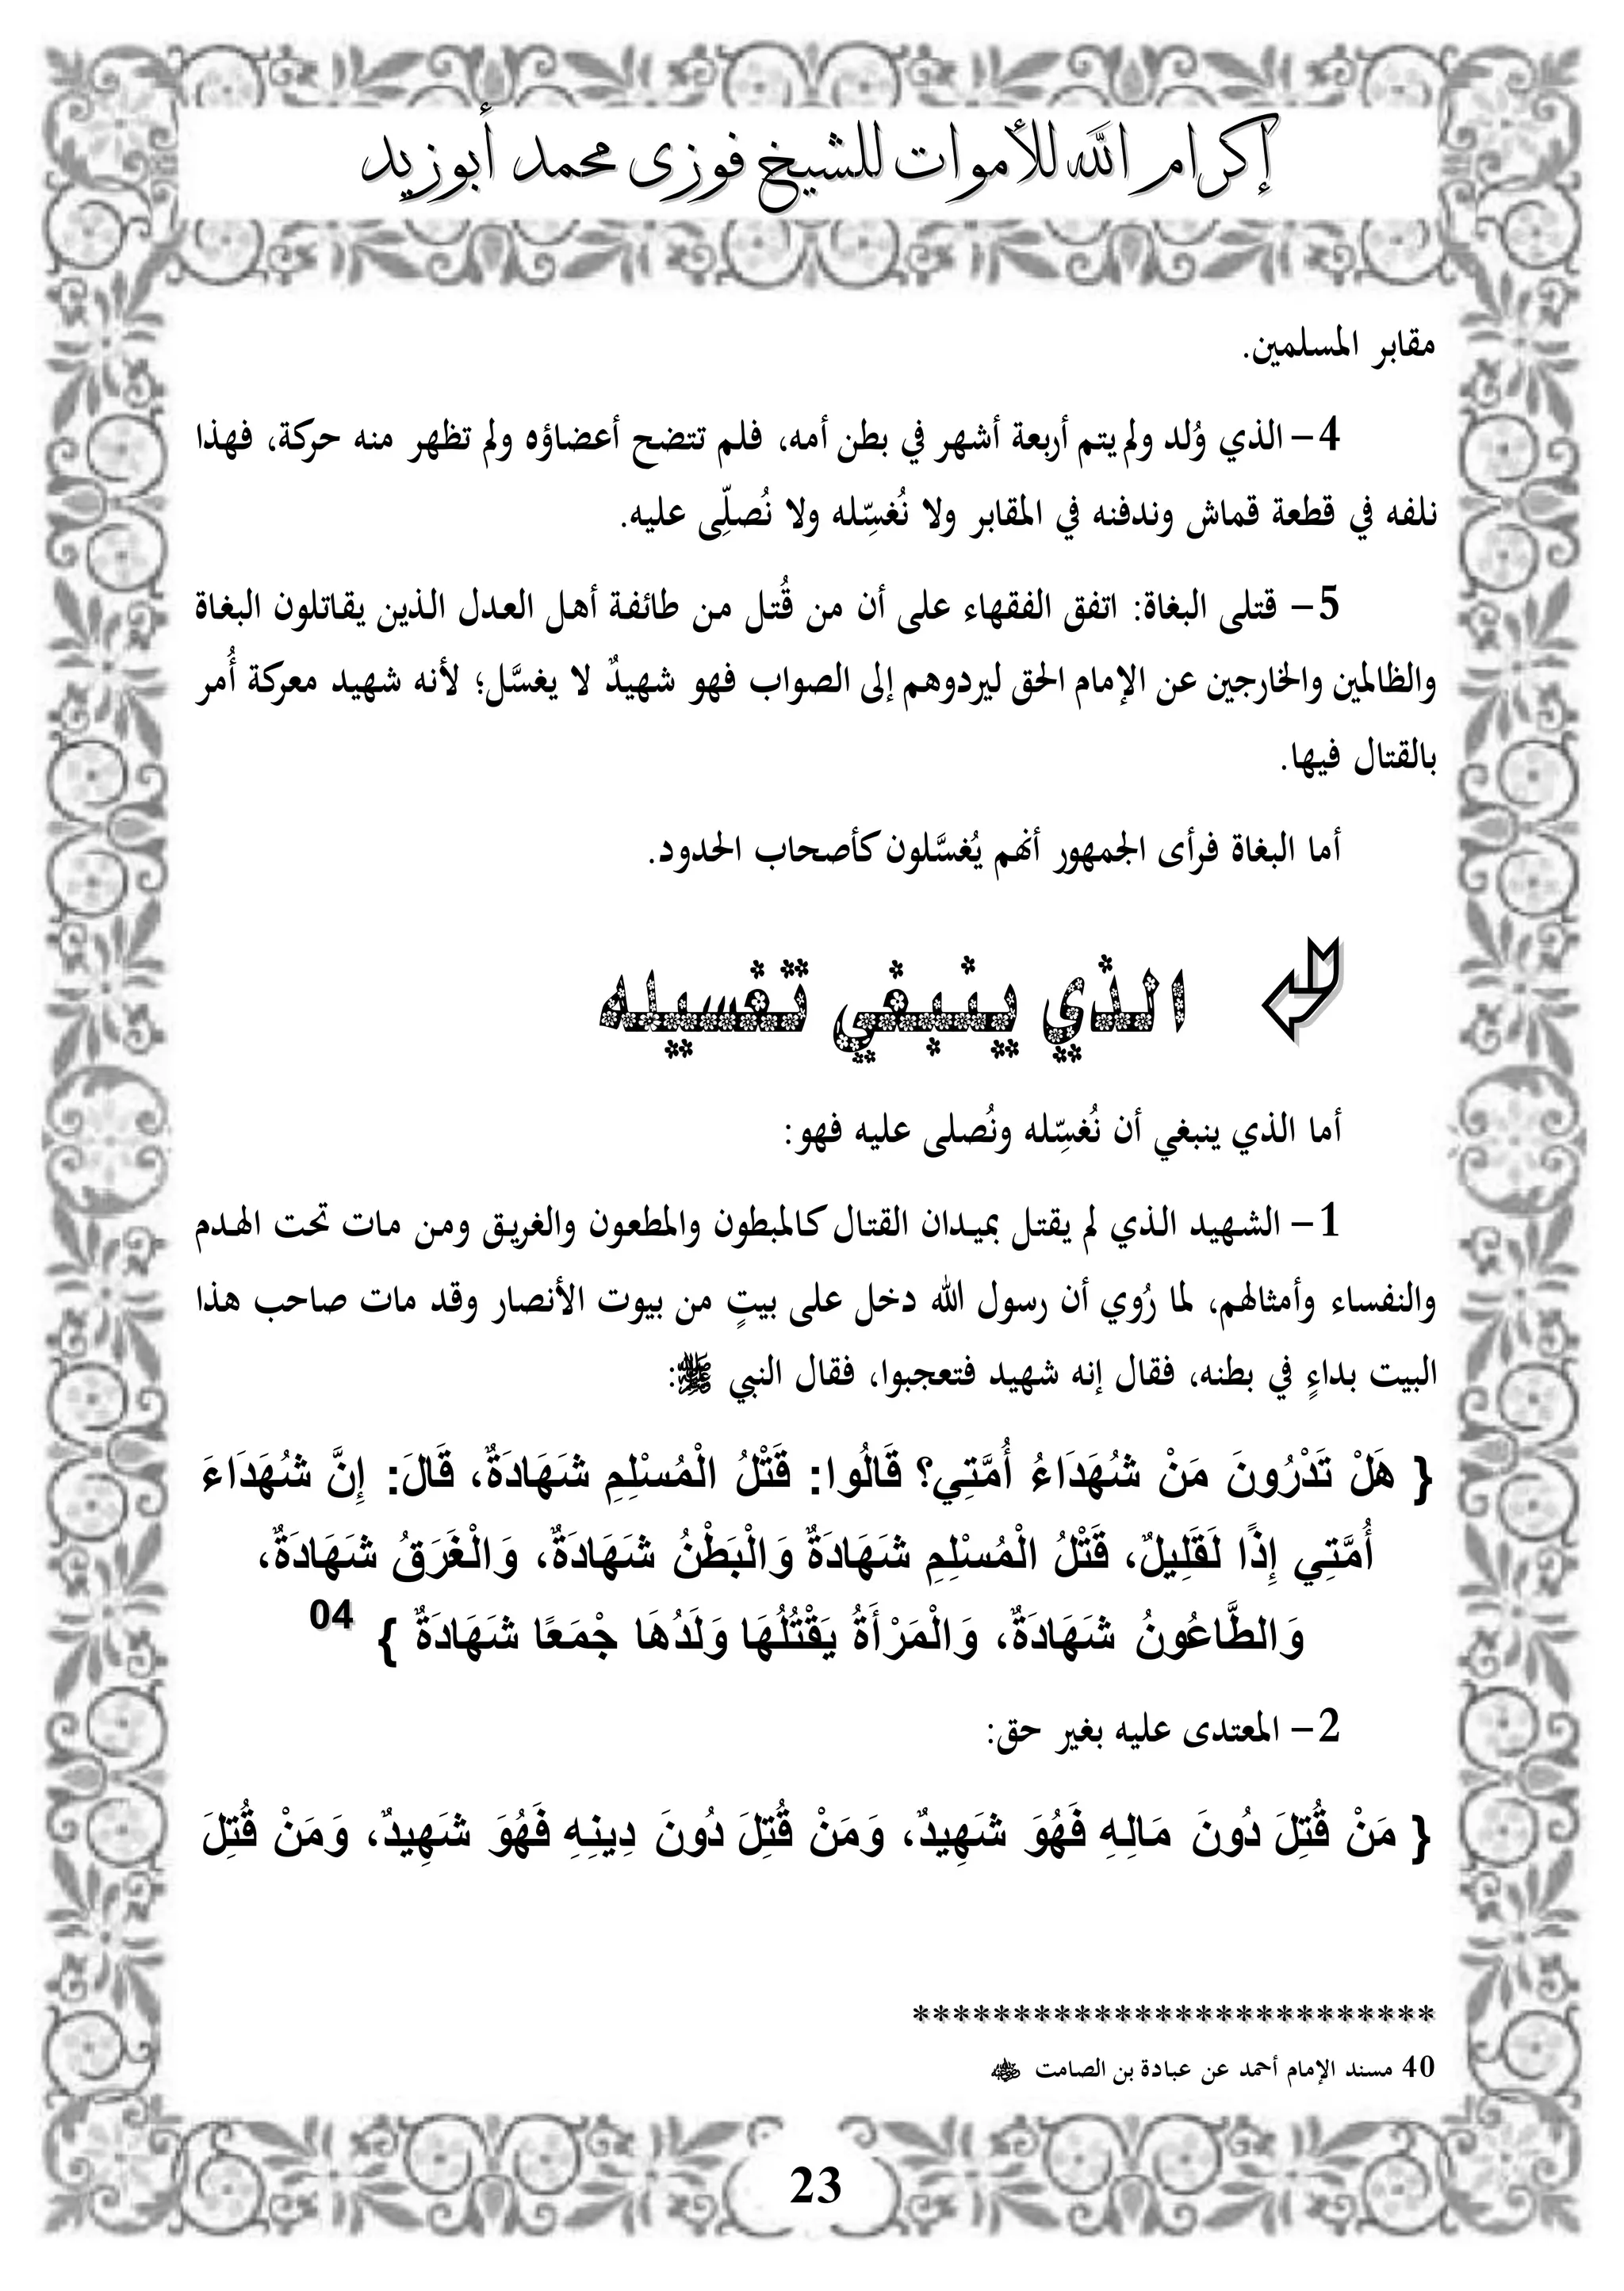 إكرام الله للأموات للشيخ فوزى محمد أبوزيد
مقابر المسلمين.
4- الذي وُلد ولم يتم أربعة أشهر في بطن أمه، فلم تتضح أعضاؤه ولم تظهر منه حركة، فهذا
نلفه في قطعة قماش وندفنه في المقابر ولا نُغسِّله ولا نُصلِّى عليه.
5- قتلى البغاة: اتفق الفقهاء على أن من قُتل من طائفة أهل العدل الذين يقاتلون البغاة
والظالمين والخارجين عن الإمام الحق ليردوهم إلى الصواب فهو شهيدٌ لا يغسَّل؛ لأنه شهيد معركة أُمر
بالقتال فيها.
أما البغاة فرأى الجمهور أنهم يُغسَّلون كأصحاب الحدود.
الذي ينبغي تغسيله
أما الذي ينبغي أن نُغسِّله ونُصلى عليه فهو:
1- الشهيد الذي لم يقتل بميدان القتال كالمبطون والمطعون والغريق ومن مات تحت الهدم
والنفساء وأمثالهم، لما رُوي أن رسول الله دخل على بيتٍ من بيوت الأنصار وقد مات صاحب هذا
البيت بداءٍ في بطنه، فقال إنه شهيد فتعجبوا، فقال النبي ﷺ:
{ هَلْ تَدْرُونَ مَنْ شُهَدَاءُ أُمَّتِي؟ قَالُوا: قَتْلُ الْمُسْلِمِ شَهَادَةٌ، قَالَ: إِنَّ شُهَدَاءَ
أُمَّتِي إِذًا لَقَلِيلٌ، قَتْلُ الْمُسْلِمِ شَهَادَةٌ وَالْبَطْنُ شَهَادَةٌ، وَالْغَرَقُ شَهَادَةٌ،
وَالطَّاعُونُ شَهَادَةٌ، وَالْمَرْأَةُ يَقْتُلُهَا وَلَدُهَا جْمَعًا شَهَادَةٌ } 04
2- المعتدى عليه بغير حق:
{ مَنْ قُتِلَ دُونَ مَالِهِ فَهُوَ شَهِيدٌ، وَمَنْ قُتِلَ دُونَ دِينِهِ فَهُوَ شَهِيدٌ، وَمَنْ قُتِلَ
**************************
40 مسند الإمام أحمد عن عبادة بن الصامت
23